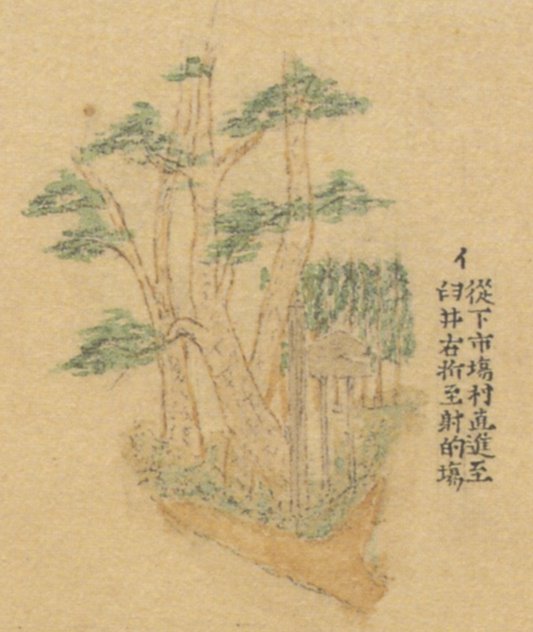 イ
從下市塲村直進至
臼井右折至射的塲